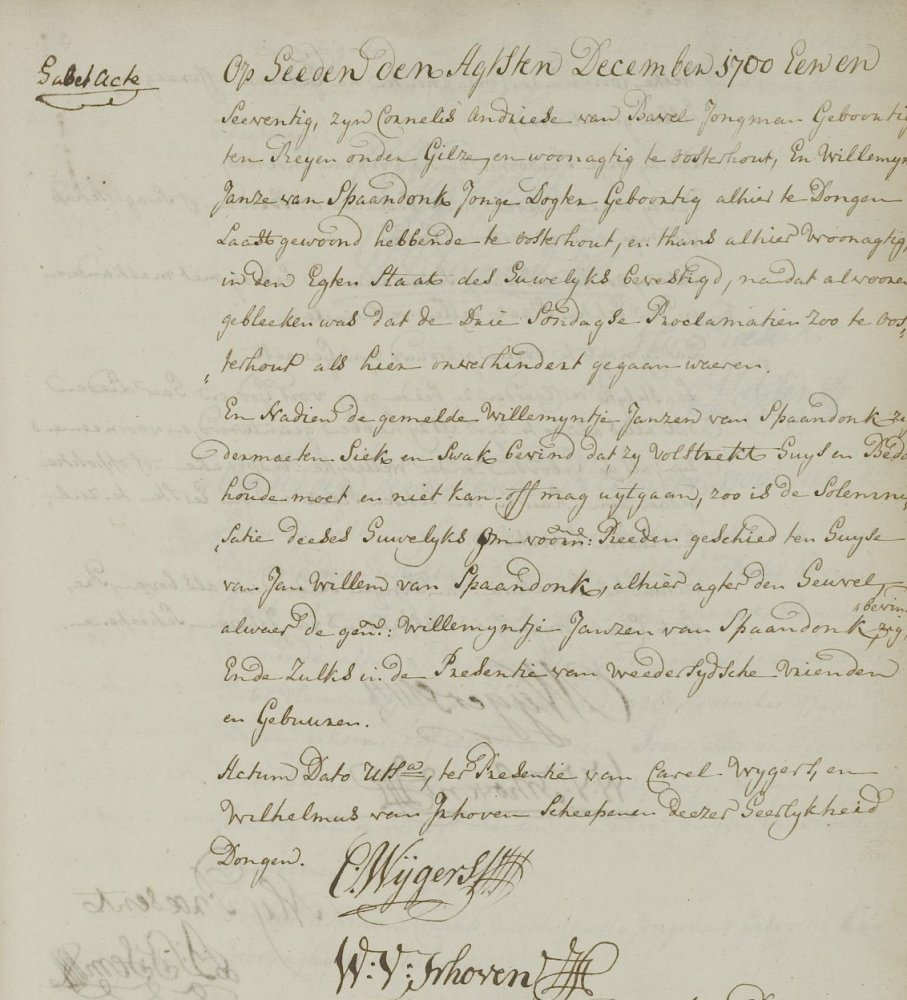 Gabel Acte
Op Heeden den Agtsten December 1700 Een en
Seeventig, zyn Cornelis Andriese van Bavel Jongman Geboortig
ten Reyen onder Gilze, en woonagtig te oosterhout, En Willemyn
Janze van Spaandonk Jonge Dogter Geboortig alhier te Dongen
Laast gewoond hebbende te oosterhout, en thans alhier Woonagtig,
in den Egten Staat des Huwelyks bevestigd, na dat alvooren
gebleeken was dat de Drie Sondagse Proclamatien zoo te Oos„
„terhout als hier onverhindert gegaan waeren.
En Nadien de gemelde Willemyntje Janzen van Spaandonk ze,
dermaeten Siek en Swak bevind dat zy volstrekt Huys en Bedd
houde moet en niet kan off mag uytgaan, zoo is de Solemni
„satie deeses Huwelyks Om voorn: Reeden geschied ten Huyse
van Jan Willem van Spaandonk, alhier agter den Heuvel,
alwaer de gen: Willemyntje Janzen van Spaandonk zig
„bevin
Ende Zulks in de Presentie van Weedersydsche vrienden
en Gebuuren.
Actum Dato Utsa, ter Presentie van Carel Wygers, en
Wilhelmus van Inhoven Scheepenen deezer Heerlykheid
Dongen.
C: Wÿgers
W: V: Inhoven